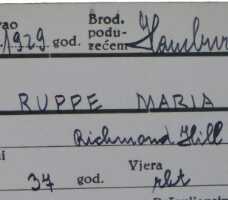 1929 god. Brod. podu-zećem Hambur
RUPPE MARIA
Richmond Hill
34 god. Vjera rkt